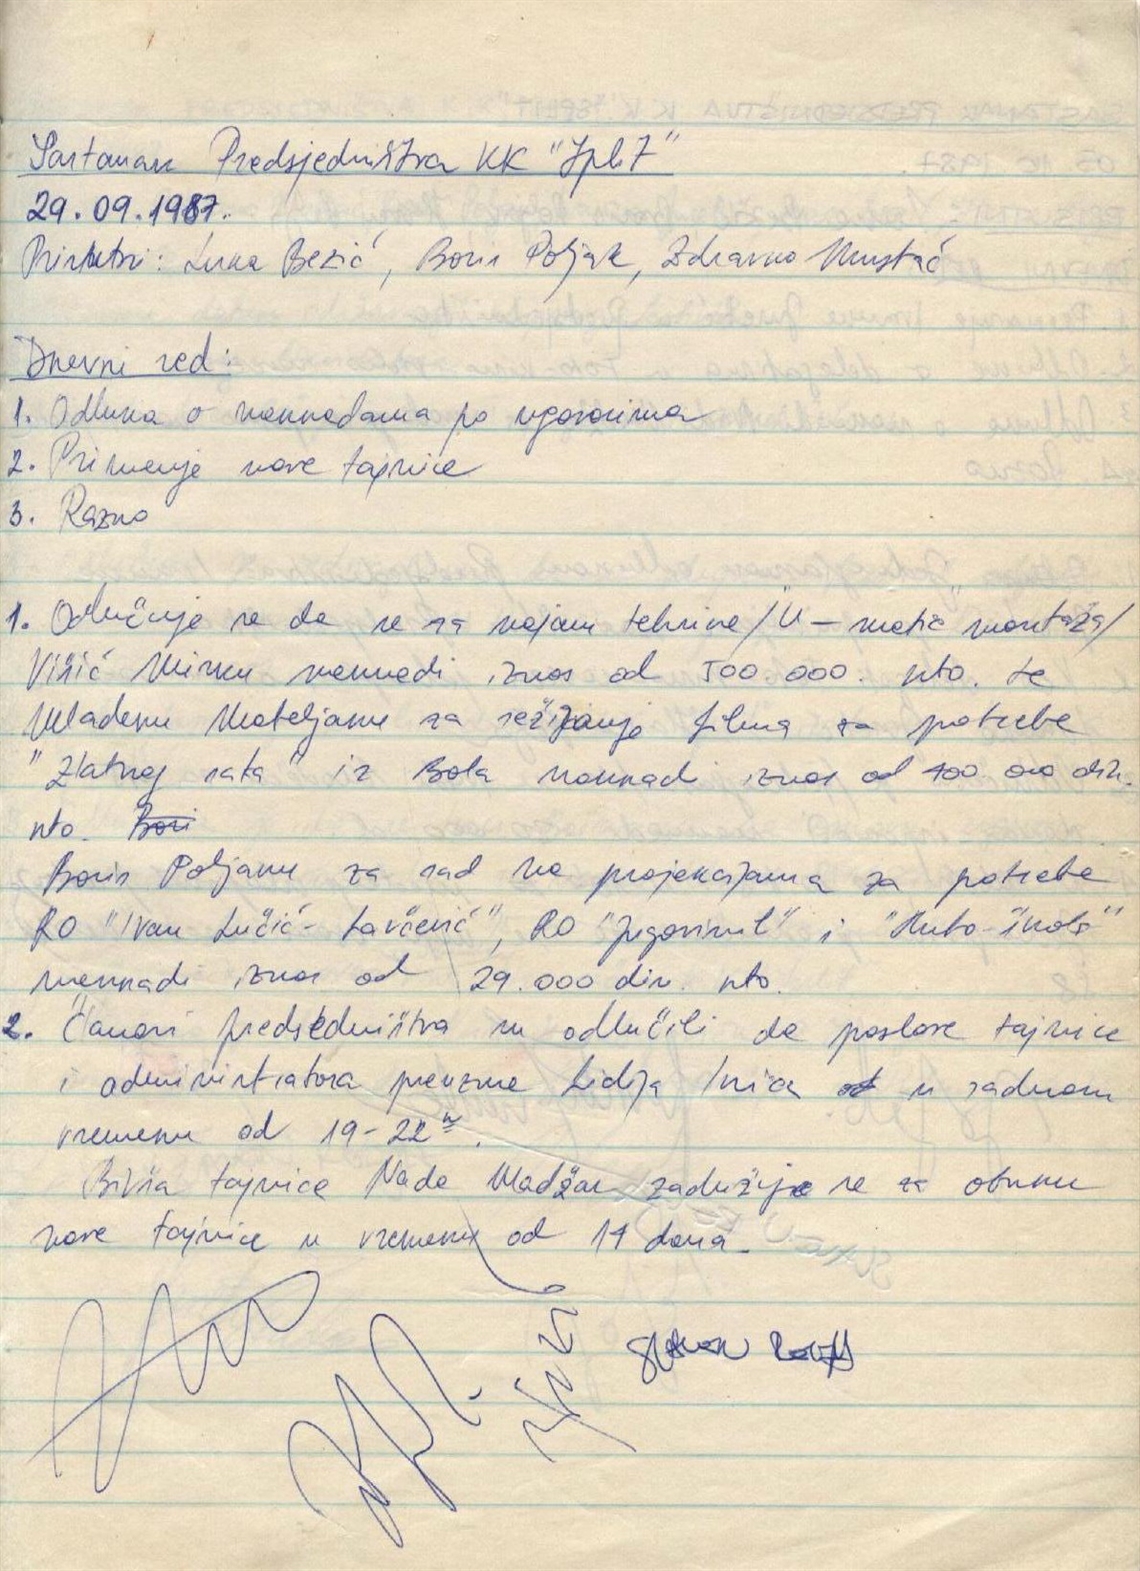 Sastanak Predsjedništva KK "Split"
29.09.1987.
Prisutni: Luka Bezić, Boris Poljak, Zdravko Mustać
Dnevni red:
1. Odluka o naknadama po ugovorima
2. Primanje nove tajnice
3. Razno
1. Odlučuje se da se za najam tehnike /U-matic montaža/
Višić Mirku naknadi iznos od 500.000. nto. te
Mladenu Mateljanu za režiranje filma za potrebe
"Zlatnog rata" iz Bola naknadi iznos od 400.000 din.
nto. Bori
Boris Poljaku za rad na projekcijama za potrebe
RO "Ivan Lučić-Lavčević", RO "Jugovinil" i "Auto-škola"
naknadi iznos od 29.000 din. nto.
2. Članovi predsjedništva su odlučili da poslove tajnice
i administratora preuzme Lidija u radnom
vremenu od 19-22h.
Bivša tajnica Nada Madžar zadužuje se za obuku
nove tajnice u vremenu od 14 dana.